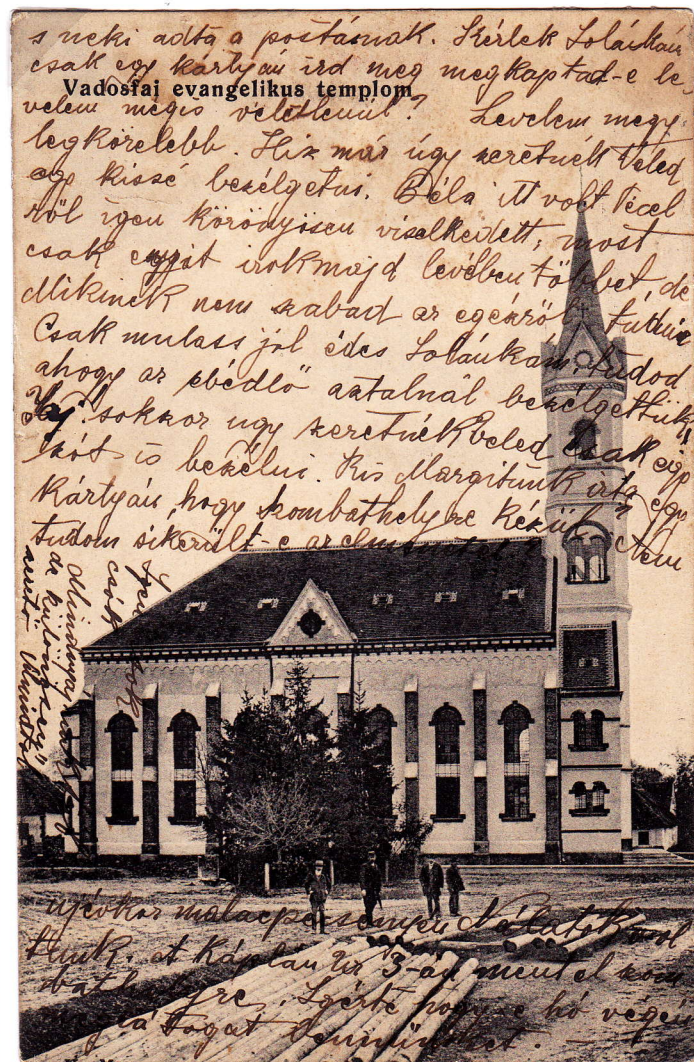 s neki adta a postásnak. Kérlek Solánkám
csak egy kártyán ird meg megkaptad-e le-
Vadosfai evangelikus templom
velem mégis véletlenül? Levelem megy
legközelebb. Hisz már úgy szeretnék Veled
egy kissé beszélgetni. Béla itt volt
ről igen közönyösen viselkedett, most
csak ennyit irok majd levélben többet, de
Mikinek nem szabad az egészről tudnia
Csak mulass jól édes Solánkám, tudod
ahogy az ebédlő asztalnál beszélgettünk
sokszor ugy szeretnék veled csak egy
szót is beszélni. Kis Margitunk irta egy
kártyán, hogy Szombathelyre készül? Nem
tudom sikerült-e az
csók
de különösen
ujévkor malacpecsenyén Nálatok vol
tunk. A Káplán úr 3-án ment el szom
bathelyre. Igérte hogy e hó végén
meglátogat bennünket. —